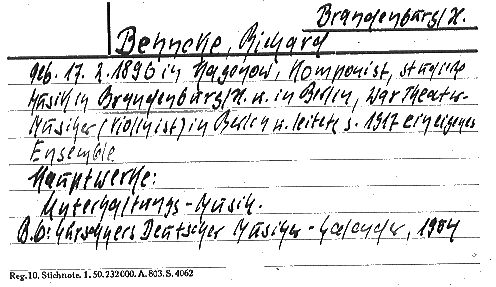 Brandenburg/H.
Behncke, Richard
geb. 17. 2. 1896 in Hagenow, Komponist, studierte
Musik in Brandenburg/H. u. in Berlin, war Theater-
Musiker (Violinist) in Berlin u. leitete s. 1917 ein eigenes
Ensemble
Hauptwerke:
Unterhaltungs-Musik.
B.O: Kürschners Deutscher Musiker-Kalender, 1954
Reg. 10. Stichnote. 1. 50. 232000. A. 803. S. 4062